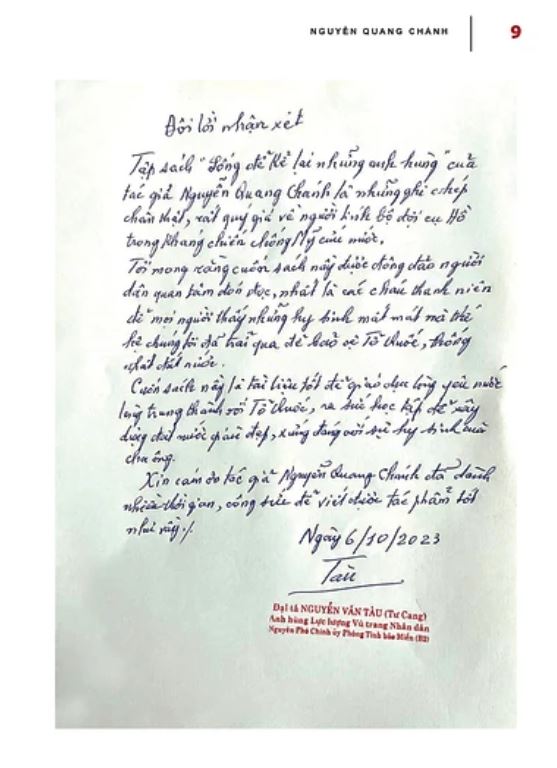 NGUYỄN QUANG CHÁNH 9
Đôi lời nhận xét
Tập sách "Sống để kể lại những anh hùng" của
tác giả Nguyễn Quang Chánh là những ghi chép
chân thật, rất quý giá về người lính bộ đội cụ Hồ
trong kháng chiến chống Mỹ cứu nước.
Tôi mong rằng cuốn sách này được đông đảo người
dân quan tâm đón đọc, nhất là các cháu thanh niên
để mọi người thấy những hy sinh mất mát mà thế
hệ chúng tôi đã trải qua để bảo vệ Tổ Quốc, thống
nhất đất nước.
Cuốn sách này là tài liệu tốt để giáo dục lòng yêu nước
lòng trung thành với Tổ Quốc, ra sức học tập để xây
dựng đất nước giàu đẹp, xứng đáng với sự hy sinh của
cha ông.
Xin cám ơn tác giả Nguyễn Quang Chánh đã dành
nhiều thời gian, công sức để viết được tác phẩm tốt
như vậy./.
Ngày 6/10/2023
Tàu
Đại tá NGUYỄN VĂN TÀU (Tư Cang)
Anh hùng Lực lượng Vũ trang Nhân dân
Nguyên Phó Chính ủy Phòng Tình báo Miền (B2)